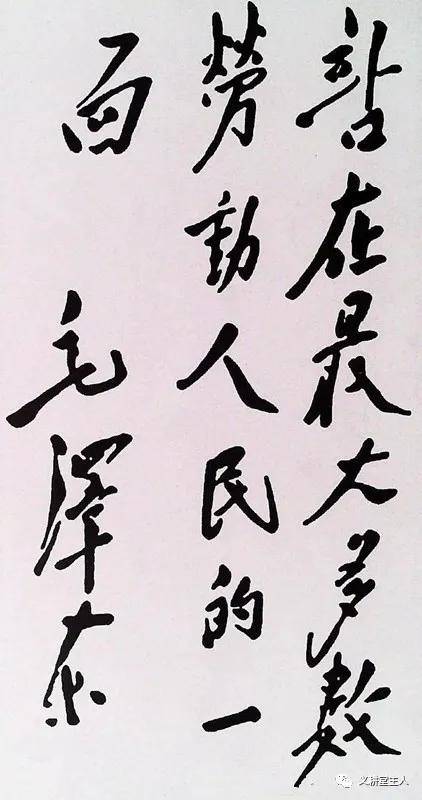 站在最大多數
勞動人民的一
面 毛澤东
义耕堂主人